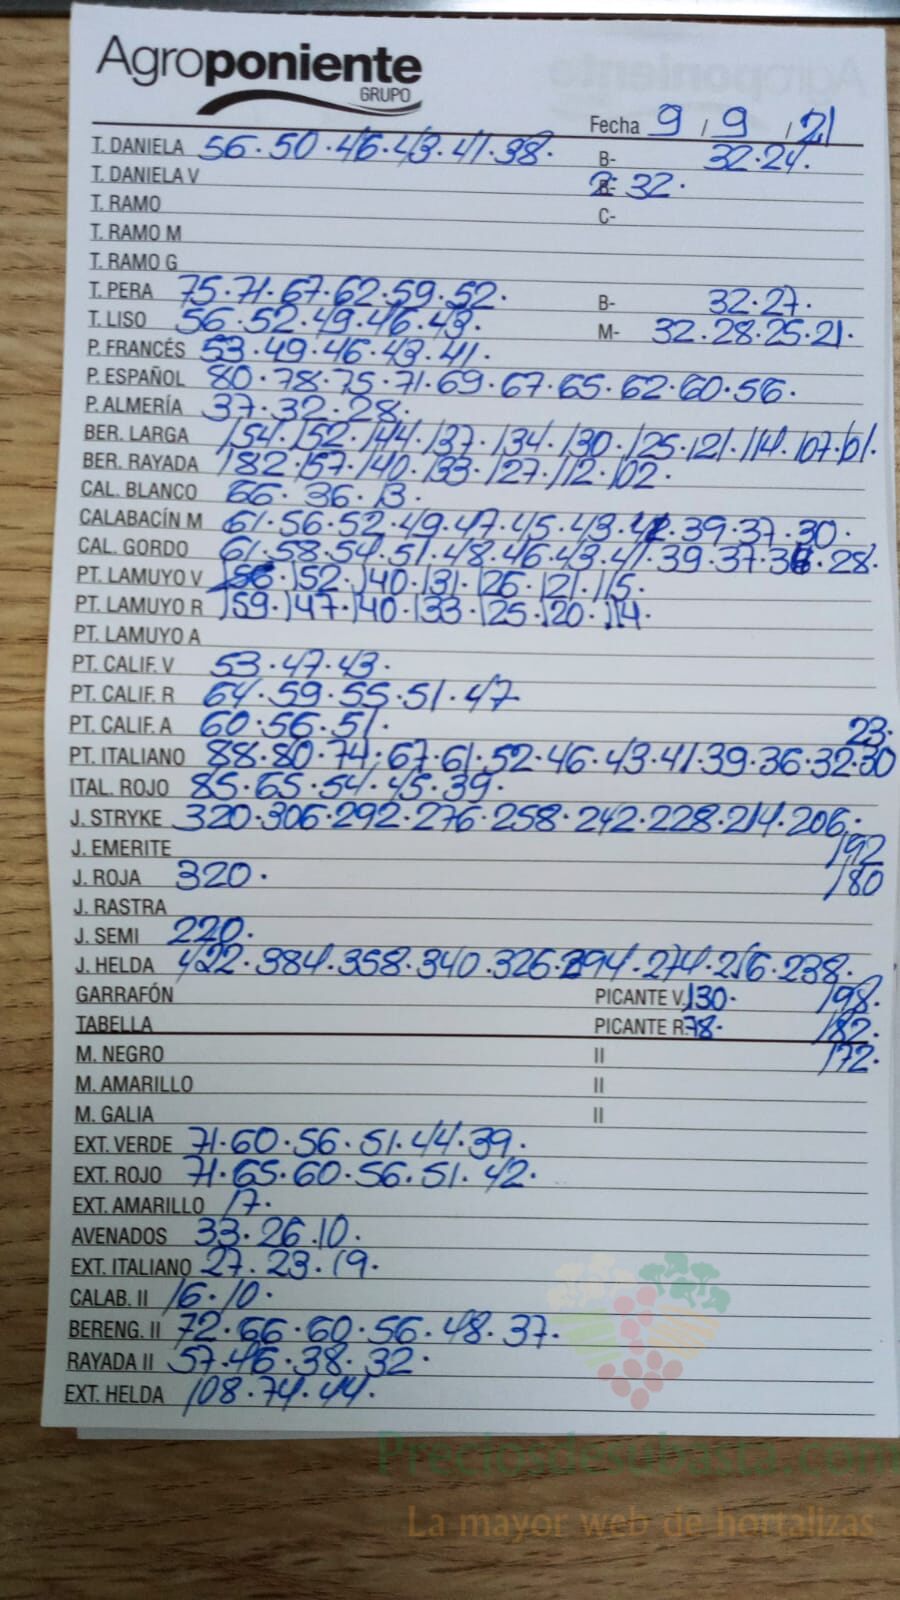 Agroponiente
GRUPO
Fecha 9 / 9 / 21
T. DANIELA 56·50·46·43·41·38· B- 32·24·
T. DANIELA V 2: 32·
T. RAMO C-
T. RAMO M
T. RAMO G
T. PERA 75·71·67·62·59·52· B- 32·27·
T. LISO 56·52·49·46·43· M- 32·28·25·21·
P. FRANCÉS 53·49·46·43·41·
P. ESPAÑOL 80·78·75·71·69·67·65·62·60·56·
P. ALMERÍA 37·32·28·
BER. LARGA 154·152·144·137·134·130·125·121·114·107·101·
BER. RAYADA 182·157·140·133·127·112·102·
CAL. BLANCO 66·36·13·
CALABACÍN M 61·56·52·49·47·45·43·42·39·37·30·
CAL. GORDO 61·58·54·51·48·46·43·41·39·37·36·28·
PT. LAMUYO V 156·152·140·131·126·121·115·
PT. LAMUYO R 159·147·140·133·125·120·114·
PT. LAMUYO A
PT. CALIF. V 53·47·43·
PT. CALIF. R 64·59·55·51·47
PT. CALIF. A 60·56·51· 23·
PT. ITALIANO 88·80·74·67·61·52·46·43·41·39·36·32·30
ITAL. ROJO 85·65·54·45·39·
J. STRYKE 320·306·292·276·258·242·228·214·206·
J. EMERITE 192
J. ROJA 320· 180
J. RASTRA
J. SEMI 220·
J. HELDA 422·384·358·340·326·294·274·256·238·
GARRAFÓN PICANTE V. 130· 198·
TABELLA PICANTE R. 78· 182·
M. NEGRO II 172·
M. AMARILLO II
M. GALIA II
EXT. VERDE 71·60·56·51·44·39·
EXT. ROJO 71·65·60·56·51·42·
EXT. AMARILLO 17·
AVENADOS 33·26·10·
EXT. ITALIANO 27·23·19·
CALAB. II 16·10·
BERENG. II 72·66·60·56·48·37·
RAYADA II 57·46·38·32·
EXT. HELDA 108·74·44·
Preciosdesubasta.com
La mayor web de hortalizas